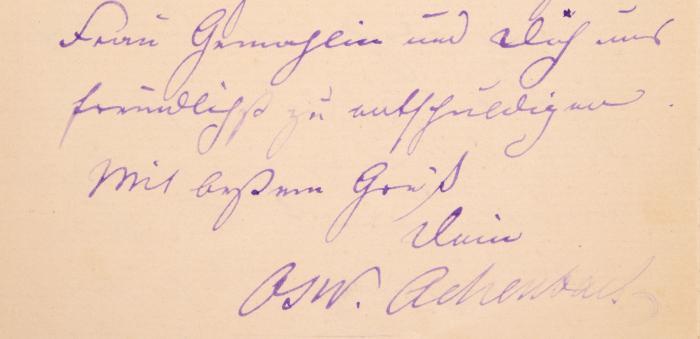 Frau Gemahlin und Dich uns
freundlichst zu entschuldigen.
Mit bestem Gruß
Dein
Osw. Achenbach